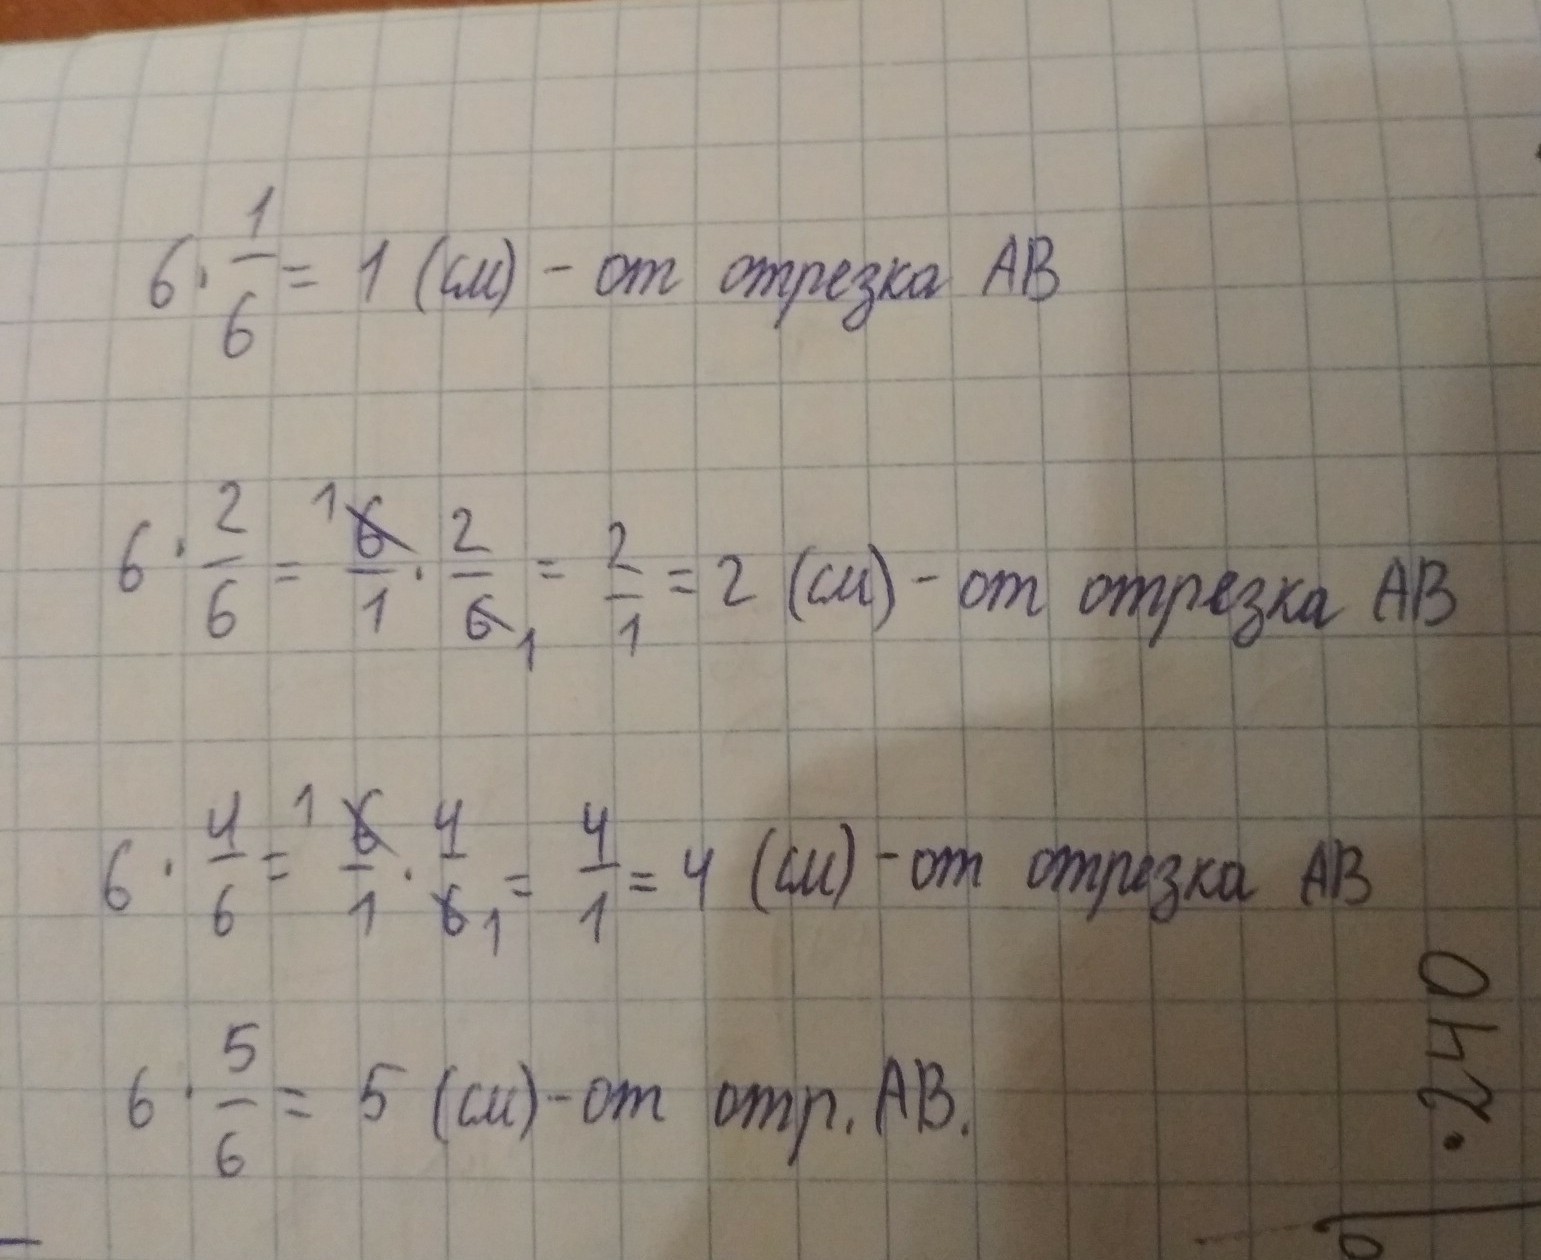 6 · 1/6 = 1 (см) - от отрезка АВ
6 · 2/6 = 1 6/1 · 2/6 1 = 2/1 = 2 (см) - от отрезка АВ
6 · 4/6 = 1 6/1 · 4/6 1 = 4/1 = 4 (см) - от отрезка АВ
6 · 5/6 = 5 (см) - от отр. АВ.
· 240